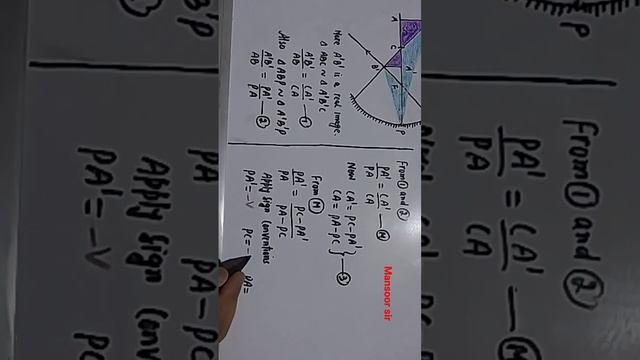 A
C
A'
B'
F
P
Here A'B' is a real image.
Δ ABC ~ Δ A'B'C
A'B'/AB = CA'/CA —①
Also Δ ABP ~ Δ A'B'P
A'B'/AB = PA'/PA —②
From ① and ②
PA'/PA = CA'/CA —Ⓜ
Now CA' = PC-PA'
CA = PA-PC } —③
From Ⓜ
PA'/PA = PC-PA'/PA-PC
Apply sign conventions
PA' = -v PC = - PA =
Mansoor sir
From ① and ②
PA'/PA = CA'/CA —Ⓜ
PA-PC
Apply sign conv
PA' = -v PC